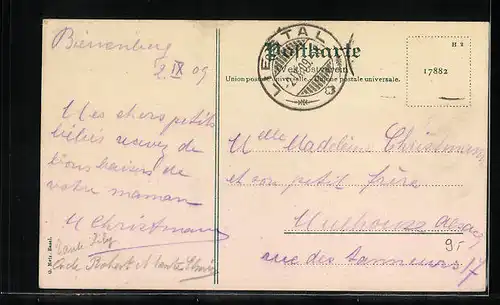 Bienenberg
2 IX 09
Mes chers petits
bébés recevez de
bons baisers de
votre maman
M Christmann
Tante
Oncle Robert et tante
G. Metz, Basel.
LIESTAL
Postkarte
Weltpostverein
Union postale universelle. Unione postale universale.
H 2
17882
Mlle Madeleine Christmann
et son petit frère
Mulhouse Alsace
rue des Tanneurs 17